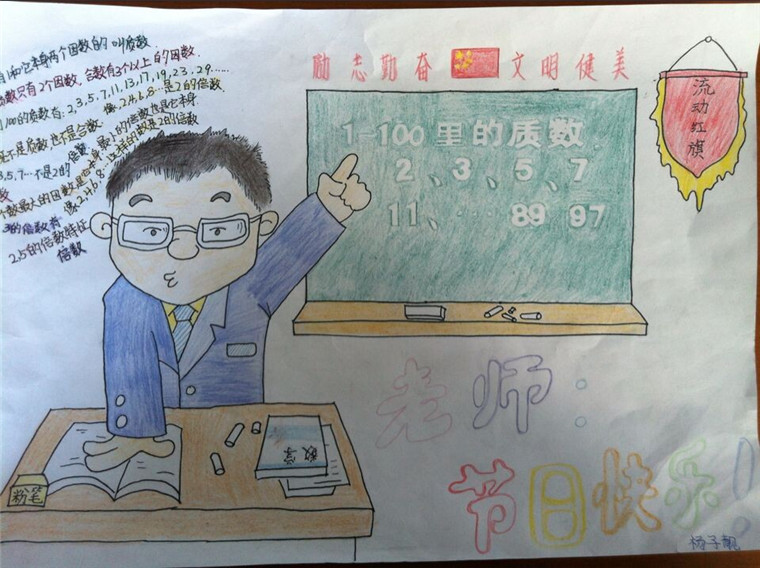 只有2个因数,合数有3个以上的因数.
100的质数有:2,3,5,7,11,13,17,19,23,29……
像2,4,6,8…是2的倍数
3,5,7…不是2的倍数
3的倍数有
2.5的倍数特征
倍数
励志勤奋 文明健美
流动红旗
1-100里的质数
2、3、5、7
11、… 89 97
数学
粉笔
老师:
节日快乐!